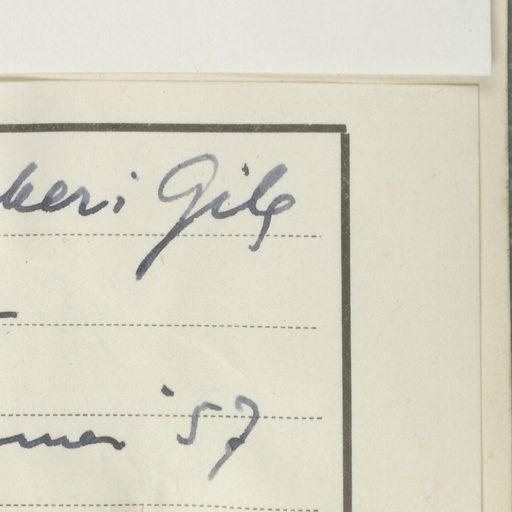 keri Gilg
mer '57